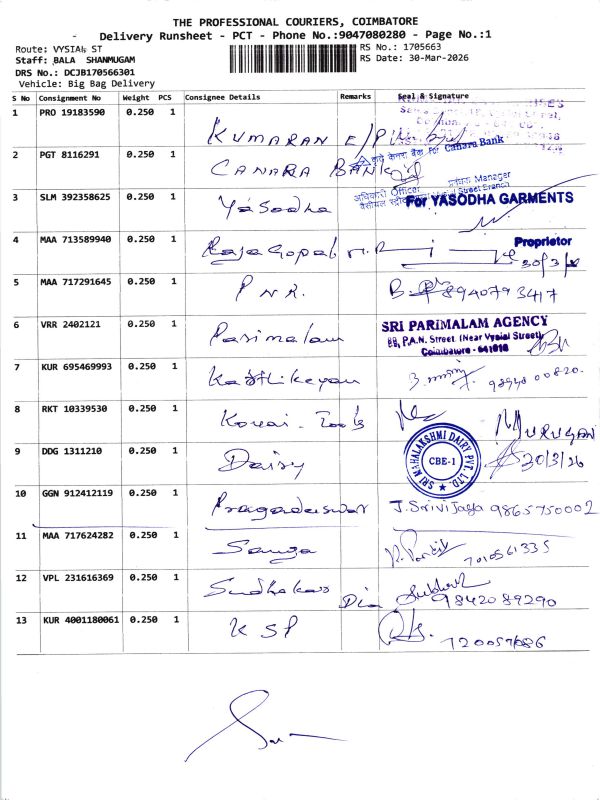 THE PROFESSIONAL COURIERS, COIMBATORE
Delivery Runsheet - PCT - Phone No.:9047080280 - Page No.:1
Route: VYSIAL ST
Staff: BALA SHANMUGAM
DRS No.: DCJB170566301
Vehicle: Big Bag Delivery
RS No.: 1705663
RS Date: 30-Mar-2026
S No Consignment No Weight PCS Consignee Details Remarks Seal & Signature
1 PRO 19183590 0.250 1 KUMARAN E/P
2 PGT 8116291 0.250 1 CANARA BANK
केनरा बैंक For Canara Bank
अधिकारी Officer Manager
3 SLM 392358625 0.250 1 Yasodha For YASODHA GARMENTS
Proprietor
4 MAA 713589940 0.250 1 Rajagopal 30/3/
5 MAA 717291645 0.250 1 PNR. 8940793417
6 VRR 2402121 0.250 1 Parimalam
SRI PARIMALAM AGENCY
88, P.A.N. Street, (Near Vysial Street)
Coimbatore - 641018
7 KUR 695469993 0.250 1 Karthikeyan 98948 00820.
8 RKT 10339530 0.250 1 Kovai Tools MURUGAN
9 DDG 1311210 0.250 1 Dairy
SRI MAHALAKSHMI DAIRY PVT. LTD.
CBE-1
30/3/26
10 GGN 912412119 0.250 1 Pragadeeswar J. Srivijaya 9865750002
11 MAA 717624282 0.250 1 Sanga 7010561335
12 VPL 231616369 0.250 1 Sudhakar Dia
9842089290
13 KUR 4001180061 0.250 1 KSP
720057086